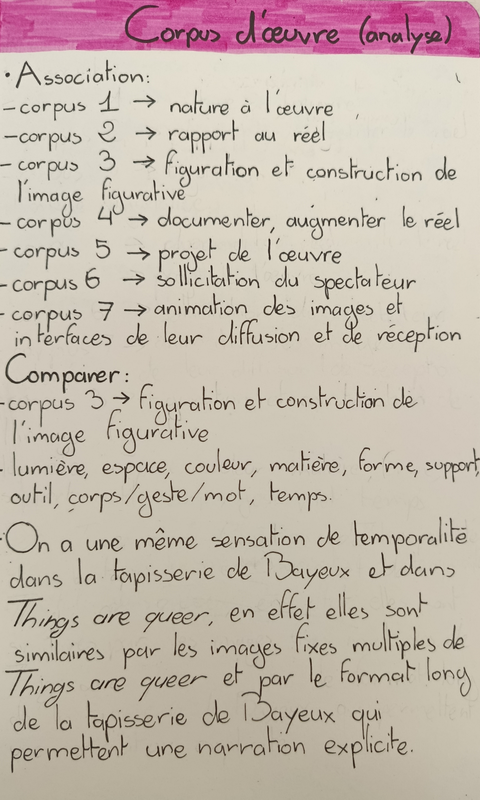 Corpus d'œuvre (analyse)
• Association:
- corpus 1 → nature à l'œuvre
- corpus 2 → rapport au réel
- corpus 3 → figuration et construction de
l'image figurative
- corpus 4 → documenter, augmenter le réel
- corpus 5 → projet de l'œuvre
- corpus 6 → sollicitation du spectateur
- corpus 7 → animation des images et
interfaces de leur diffusion et de réception
Comparer:
- corpus 3 → figuration et construction de
l'image figurative
- lumière, espace, couleur, matière, forme, support,
outil, corps/geste/mot, temps.
- On a une même sensation de temporalité
dans la tapisserie de Bayeux et dans
Things are queer, en effet elles sont
similaires par les images fixes multiples de
Things are queer et par le format long
de la tapisserie de Bayeux qui
permettent une narration explicite.